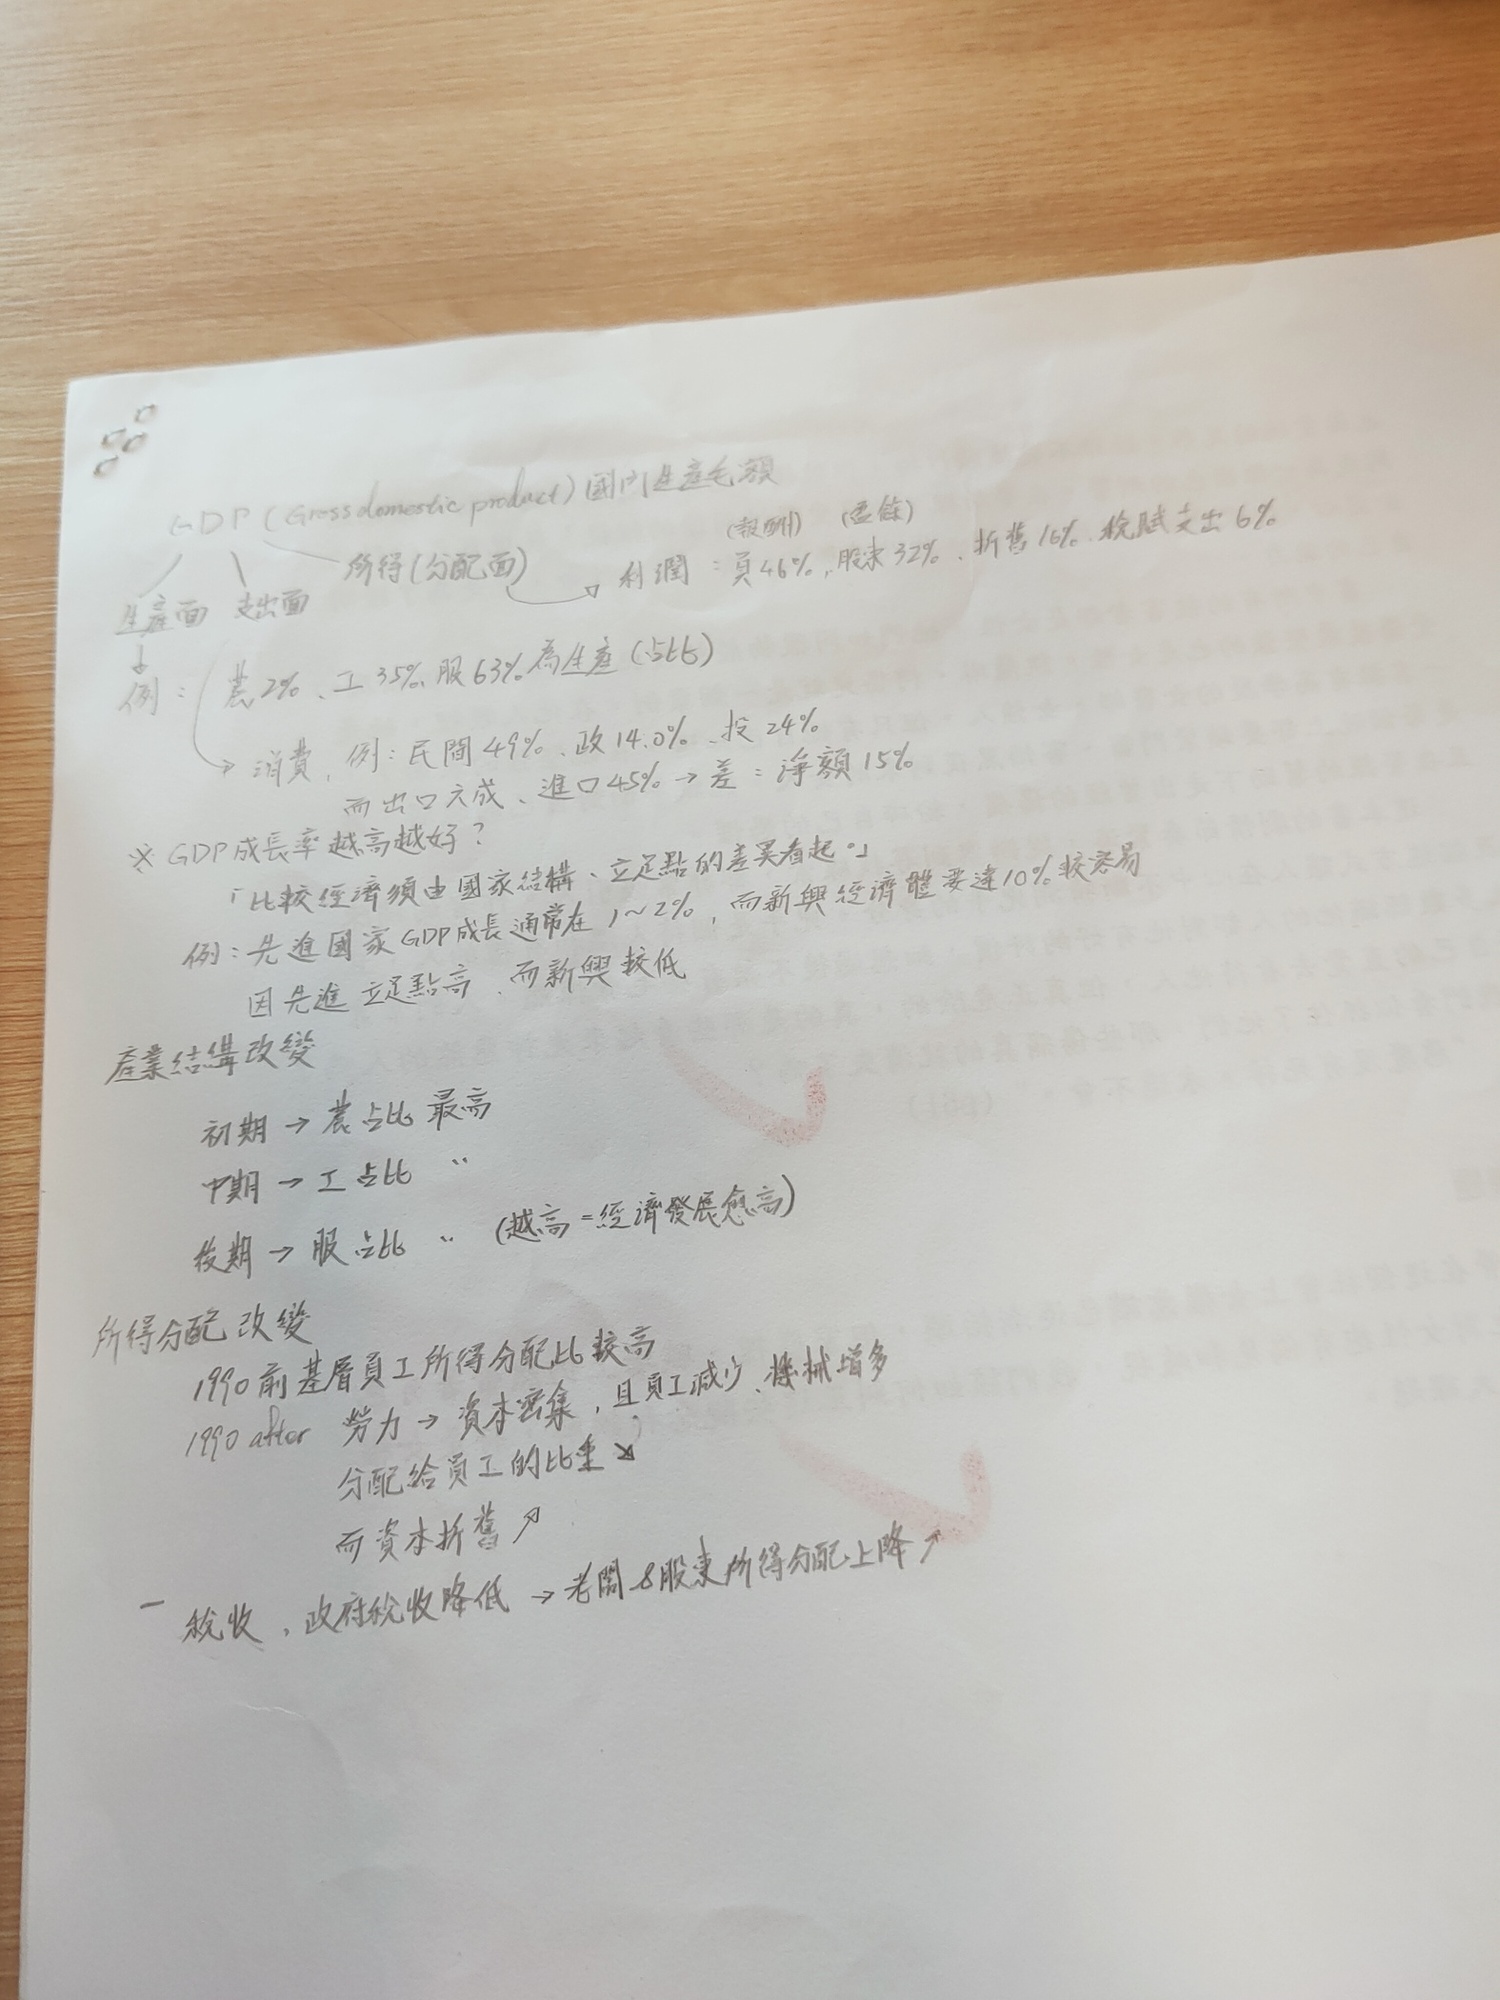 GDP (Gross domestic product) 國內生產毛額
(報酬) (盈餘)
所得(分配面) 利潤：員46%、股東32%、折舊16%、稅賦支出6%
生產面 支出面
↓
例：農2%、工35%、服63%為生產(占比)
→ 消費，例：民間49%、政14.0%、投24%
而出口六成、進口45% → 差：淨額15%
※ GDP成長率越高越好？
「比較經濟須由國家結構、立足點的差異看起。」
例：先進國家GDP成長通常在1~2%，而新興經濟體要達10%較容易
因先進立足點高，而新興較低
產業結構改變
初期 → 農占比最高
中期 → 工占比 〃
後期 → 服占比 〃 (越高=經濟發展愈高)
所得分配改變
1990前基層員工所得分配比較高
1990 after 勞力 → 資本密集，且員工減少、機械增多
分配給員工的比重↘
而資本折舊↗
稅收，政府稅收降低 → 老闆&股東所得分配上降↗